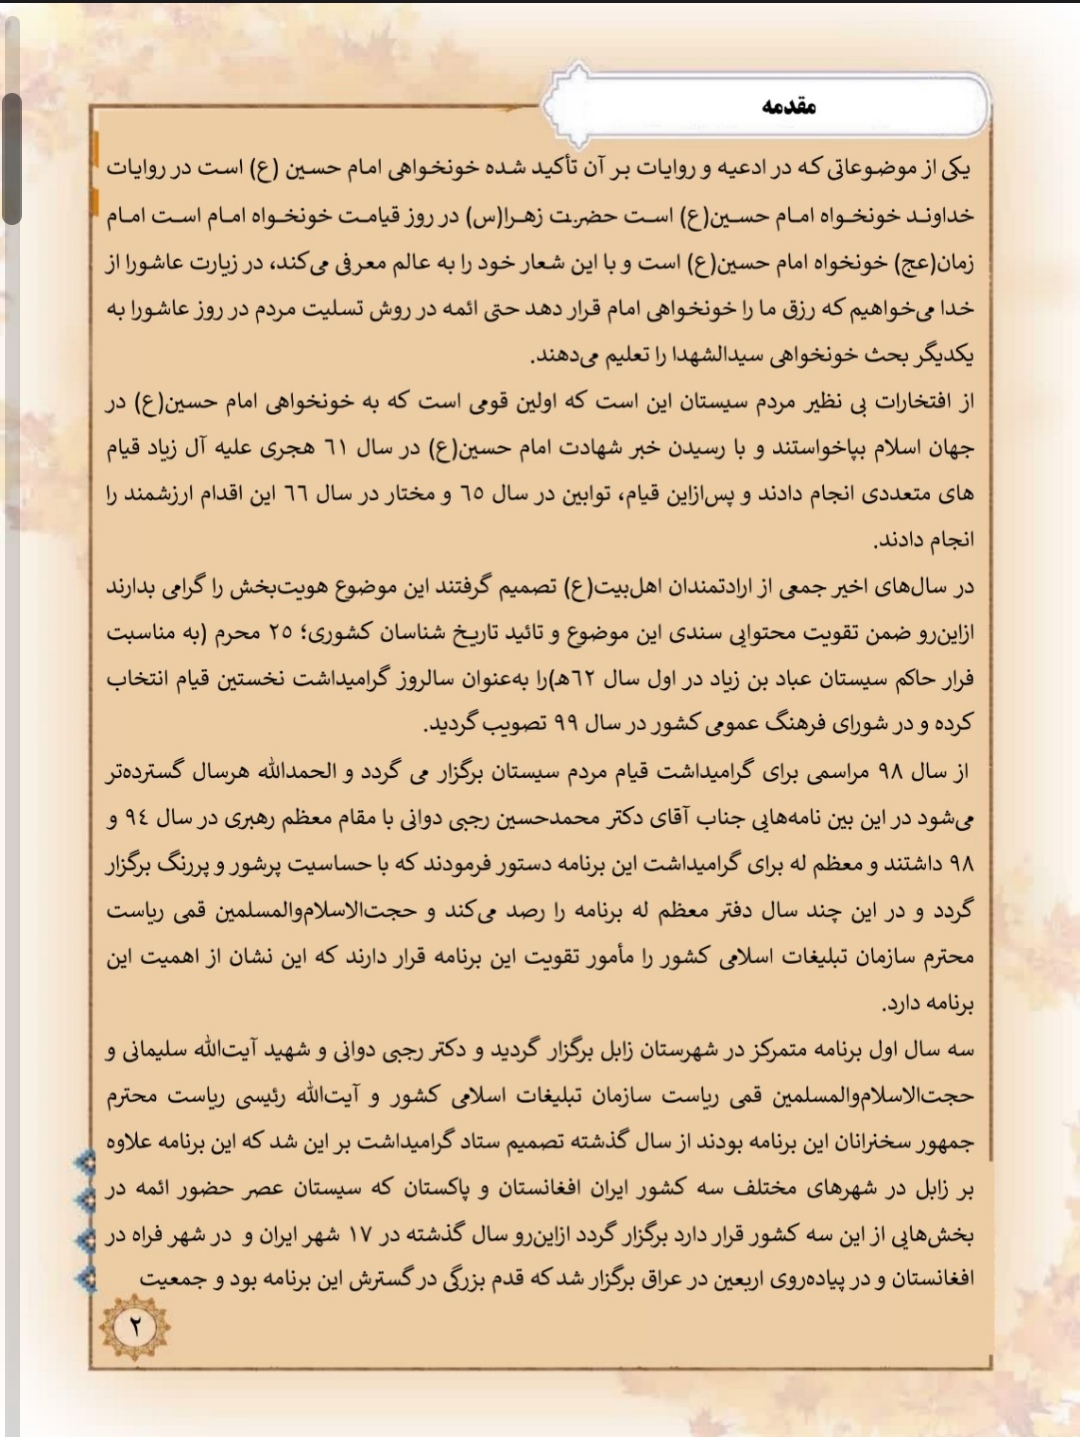 مقدمه
یکی از موضوعاتی که در ادعیه و روایات بر آن تأکید شده خونخواهی امام حسین (ع) است در روایات
خداوند خونخواه امام حسین(ع) است حضرت زهرا(س) در روز قیامت خونخواه امام است امام
زمان(عج) خونخواه امام حسین(ع) است و با این شعار خود را به عالم معرفی می‌کند، در زیارت عاشورا از
خدا می‌خواهیم که رزق ما را خونخواهی امام قرار دهد حتی ائمه در روش تسلیت مردم در روز عاشورا به
یکدیگر بحث خونخواهی سیدالشهدا را تعلیم می‌دهند.
از افتخارات بی نظیر مردم سیستان این است که اولین قومی است که به خونخواهی امام حسین(ع) در
جهان اسلام بپاخواستند و با رسیدن خبر شهادت امام حسین(ع) در سال ٦١ هجری علیه آل زیاد قیام
های متعددی انجام دادند و پس‌ازاین قیام، توابین در سال ٦٥ و مختار در سال ٦٦ این اقدام ارزشمند را
انجام دادند.
در سال‌های اخیر جمعی از ارادتمندان اهل‌بیت(ع) تصمیم گرفتند این موضوع هویت‌بخش را گرامی بدارند
ازاین‌رو ضمن تقویت محتوایی سندی این موضوع و تائید تاریخ شناسان کشوری؛ ٢٥ محرم (به مناسبت
فرار حاکم سیستان عباد بن زیاد در اول سال ٦٢ه)را به‌عنوان سالروز گرامیداشت نخستین قیام انتخاب
کرده و در شورای فرهنگ عمومی کشور در سال ٩٩ تصویب گردید.
از سال ٩٨ مراسمی برای گرامیداشت قیام مردم سیستان برگزار می گردد و الحمدالله هرسال گسترده‌تر
می‌شود در این بین نامه‌هایی جناب آقای دکتر محمدحسین رجبی دوانی با مقام معظم رهبری در سال ٩٤ و
٩٨ داشتند و معظم له برای گرامیداشت این برنامه دستور فرمودند که با حساسیت پرشور و پررنگ برگزار
گردد و در این چند سال دفتر معظم له برنامه را رصد می‌کند و حجت‌الاسلام‌والمسلمین قمی ریاست
محترم سازمان تبلیغات اسلامی کشور را مأمور تقویت این برنامه قرار دارند که این نشان از اهمیت این
برنامه دارد.
سه سال اول برنامه متمرکز در شهرستان زابل برگزار گردید و دکتر رجبی دوانی و شهید آیت‌الله سلیمانی و
حجت‌الاسلام‌والمسلمین قمی ریاست سازمان تبلیغات اسلامی کشور و آیت‌الله رئیسی ریاست محترم
جمهور سخنرانان این برنامه بودند از سال گذشته تصمیم ستاد گرامیداشت بر این شد که این برنامه علاوه
بر زابل در شهرهای مختلف سه کشور ایران افغانستان و پاکستان که سیستان عصر حضور ائمه در
بخش‌هایی از این سه کشور قرار دارد برگزار گردد ازاین‌رو سال گذشته در ١٧ شهر ایران و در شهر فراه در
افغانستان و در پیاده‌روی اربعین در عراق برگزار شد که قدم بزرگی در گسترش این برنامه بود و جمعیت
٢